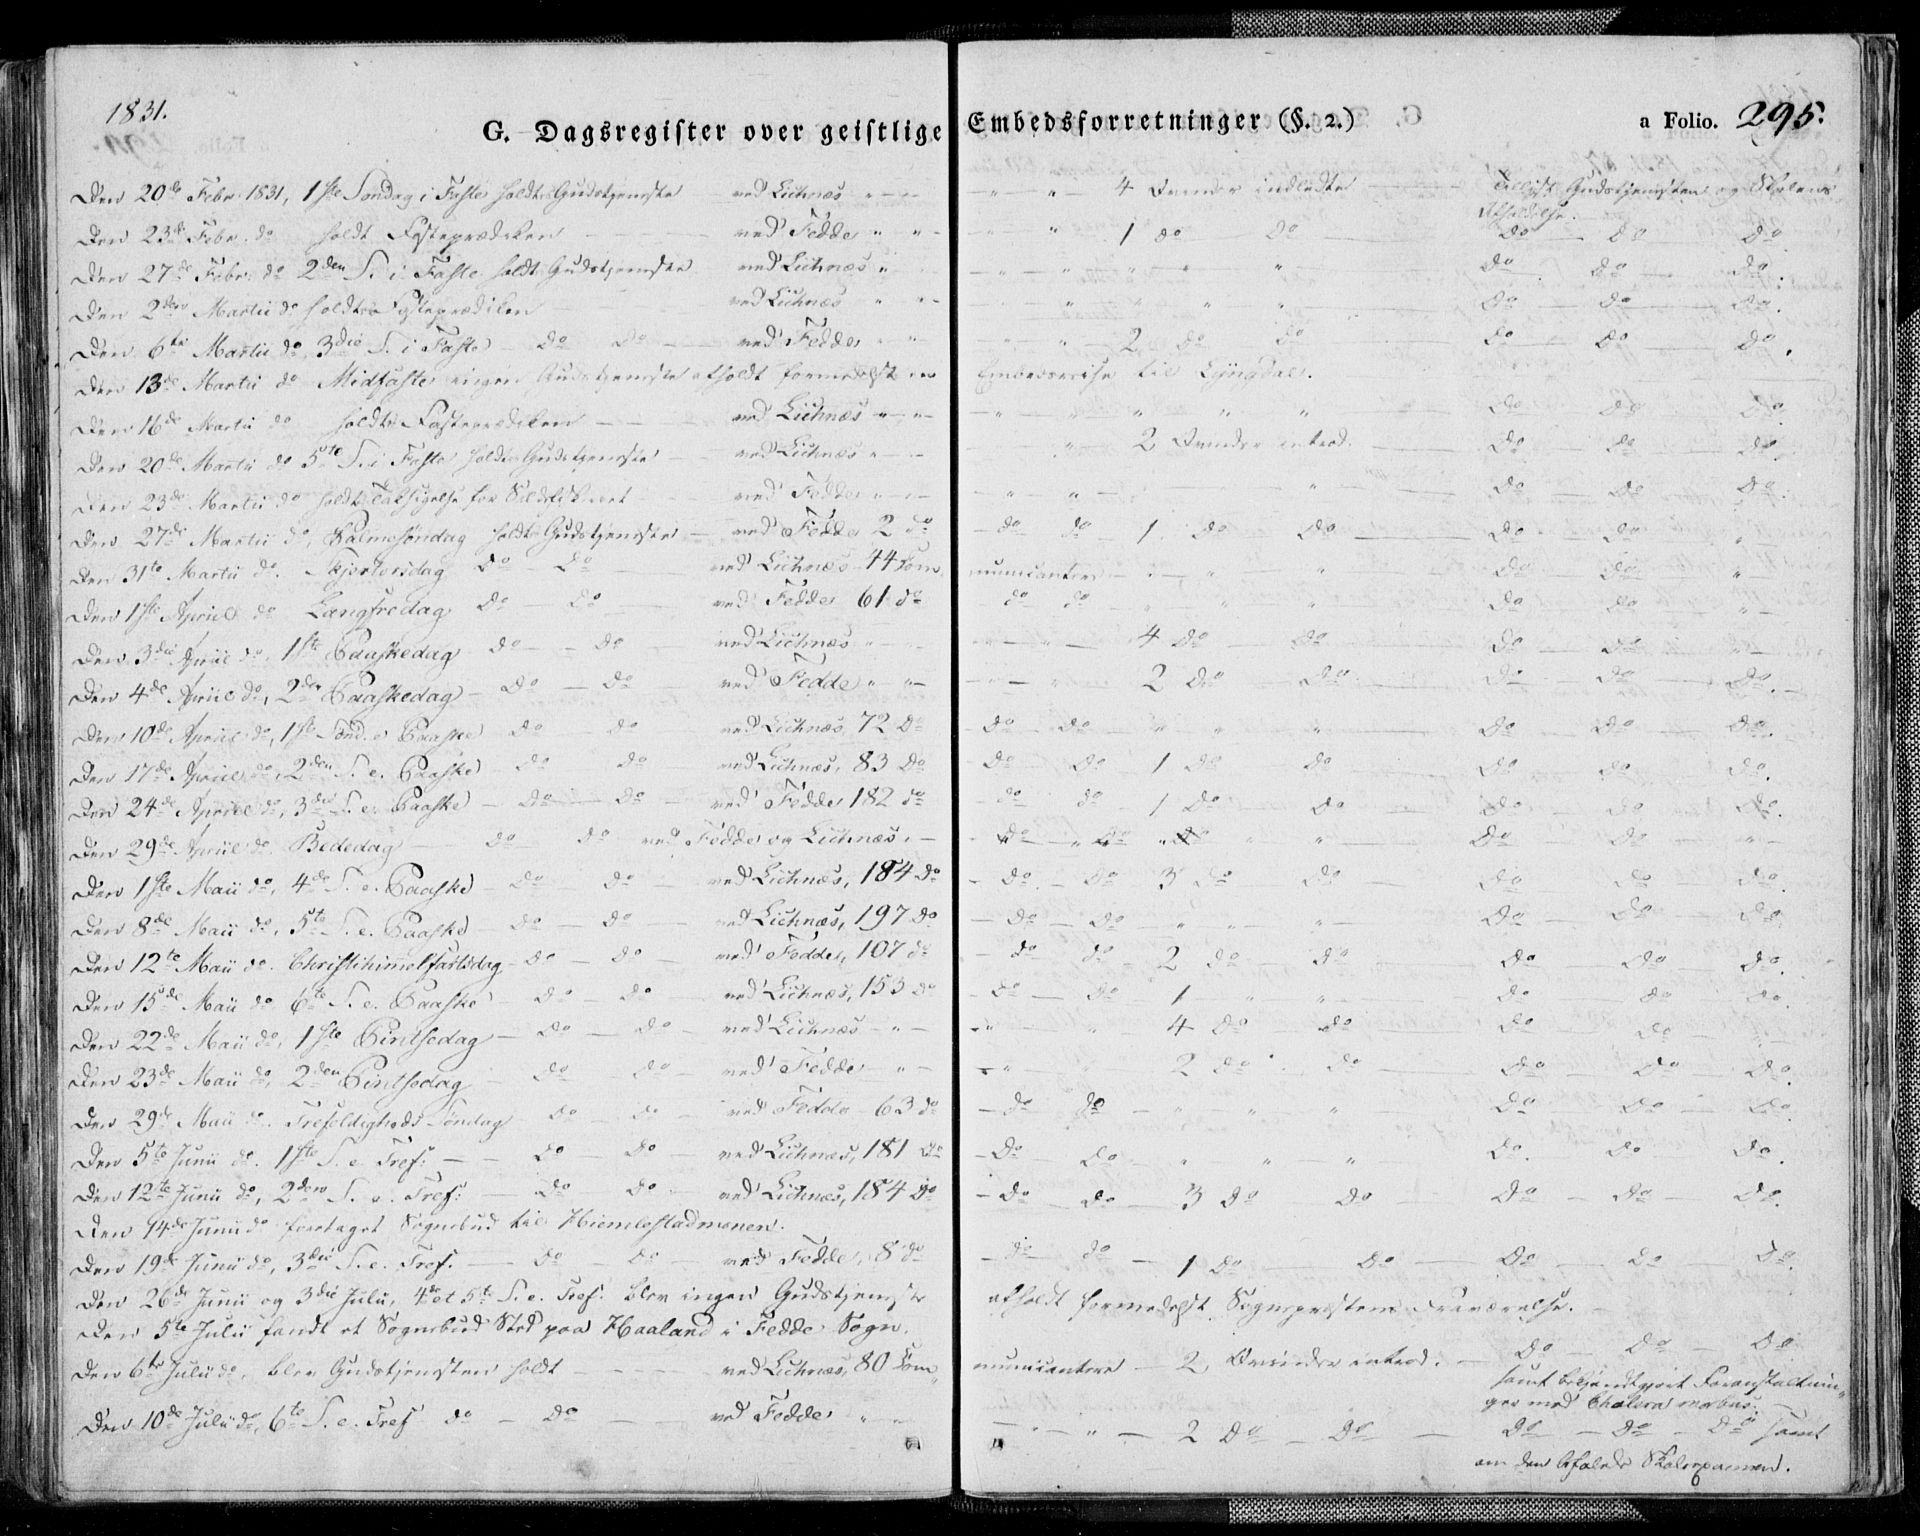 1831.
G. Dagsregister over geistlige Embedsforretninger (§. 2.) a Folio. 295.
Den 20de Febr. 1831, 1ste Søndag i Faste holdt Gudstjeneste ved Lichnæs " — — " " 4 Qvinder indledte — Tillyst Gudstjenesten og Skolens
Afholdelse.
Den 23de Febr. do holdt Fasteprædiken — ved Fedde " " — " 1 do do do — do do
Den 27de Febr. do 2den S. i Faste holdt Gudstjeneste ved Lichnæs " — " " " " do — do — do.
Den 2den Martii do holdt Fasteprædiken — ved Lichnæs " " — " " " " do — do — do.
Den 6te Martii do, 3die S. i Faste — do do — ved Fedde " " " " 2 do do do — do — do.
Den 13de Martii do Midfaste ingen Gudstjeneste afholdt formedelst en Embedsreise til Lyngdal.
Den 16de Martii do holdt Fasteprædiken — — ved Lichnæs " — " " " " " do do do.
Den 20de Martii do 5te S. i Faste holdt Gudstjeneste — ved Lichnæs " — " 2 Qvinder introd. — do — do — do.
Den 23de Martii do holdt Taksigelse for Sildefiskeriet — ved Fedde " — " " " do — do — do.
Den 27de Martii do, Palmesøndag holdt Gudstjeneste — ved Fedde 2 do — do do 1 do do do do "
Den 31te Martii do. Skjertorsdag do — do — ved Lichnæs — 44 Com municantere — " " " do — do — "
Den 1ste April do Langfredag do do — ved Fedde 61 do — do do " " " do do "
Den 3die April do, 1ste Paaskedag do — do — ved Lichnæs " — " 4 do do do do "
Den 4de April do, 2den Paaskedag — do — do — ved Fedde " " — " 2 do — do do — do — do. —
Den 10de April do, 1ste Sønd. e. Paaske do do ved Lichnæs, 72 do do — do " " " do do do.
Den 17de April do, 2den S. e. Paaske — do do — ved Lichnæs, 83 do do do 1 do do do do do.
Den 24de April do, 3die S. e. Paaske — do — do — ved Fedde, 182 do — do do 1 do — do — do — do — do.
Den 29de April do. Bededag — do do ved Fedde og Lichnæs. — do — do do " " do — do — "
Den 1ste Maii do, 4de S. e. Paaske — do do — ved Lichnæs, 184 do — do — do 3 do — do — do do — do.
Den 8de Maii do, 5te S. e. Paaske — do — do — ved Lichnæs, 197 do — do — do " " " do — do — do
Den 12te Maii do. Christihimmelfartsdag — do — do — ved Fedde, 107 do — do do 2 do do — do — do — do.
Den 15de Maii do 6te S. e. Paaske do — do — ved Lichnæs, 153 do — do — do 1 " " — do do do.
Den 22de Maii do, 1ste Pintsedag — do — do — ved Lichnæs — " — " " 4 do do — do — do "
Den 23de Maii do, 2den Pintsedag — do do — ved Fedde — " — " " 2 do do — do — do — do.
Den 29de Maii do. Trefoldigheds Søndag do — do — ved Fedde 63 do — do do — " " " — do — do — do
Den 5te Junii do. 1ste S. e. Tref: — — do — do — ved Lichnæs, 181 do — do do " " " — do. do — do.
Den 12te Junii do, 2den S. e. Tref: — do do — ved Lichnæs, 184 do — do do 3 do do — do — do — do.
Den 14de Junii do foretaget Sognebud til Hiemlestadmonen.
Den 19de Junii do, 3die S. e. Tref. — do — do — ved Fedde, 8 do — do do — 1 do — do — do — do do.
Den 26de Junii og 3die Julii, 4de et 5te S. e. Tref. blev ingen Gudstjeneste afholdt formedelst Sognepræstens Fraværelse.
Den 5te Julii fandt et Sognebud Sted paa Haaland i Fedde Sogn.
Den 6te Julii do, blev Gudstjenesten holdt — — ved Lichnæs, 80 Com municantere — 2 Qvinder introd. — do — do — do
samt bekjendtgjort Foranstaltnin
ger mod Cholera morbus. —
Den 10de Julii do, 6te S. e. Tref do — do — — ved Fedde " " — " — " — 2 do — do — do — do — do samt
om den befalede Skoleexamen.